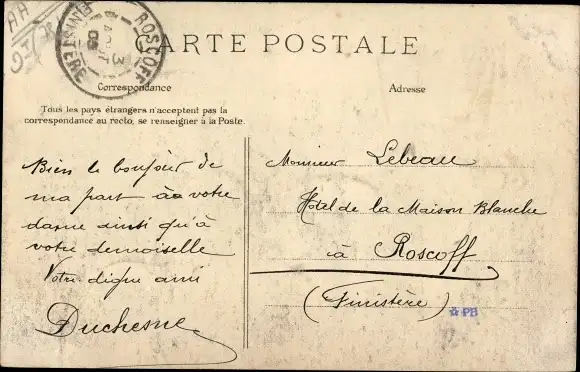 ROSCOFF
FINISTERE
3
AOUT
05
CARTE POSTALE
Correspondance
Adresse
Tous les pays étrangers n'acceptent pas la
correspondance au recto, se renseigner à la Poste.
Bien le bonjour de
ma part à votre
dame ainsi qu'à
votre demoiselle
Votre digne ami
Duchesne
Monsieur Lebeau
Hôtel de la Maison Blanche
à Roscoff
(Finistère)
PB